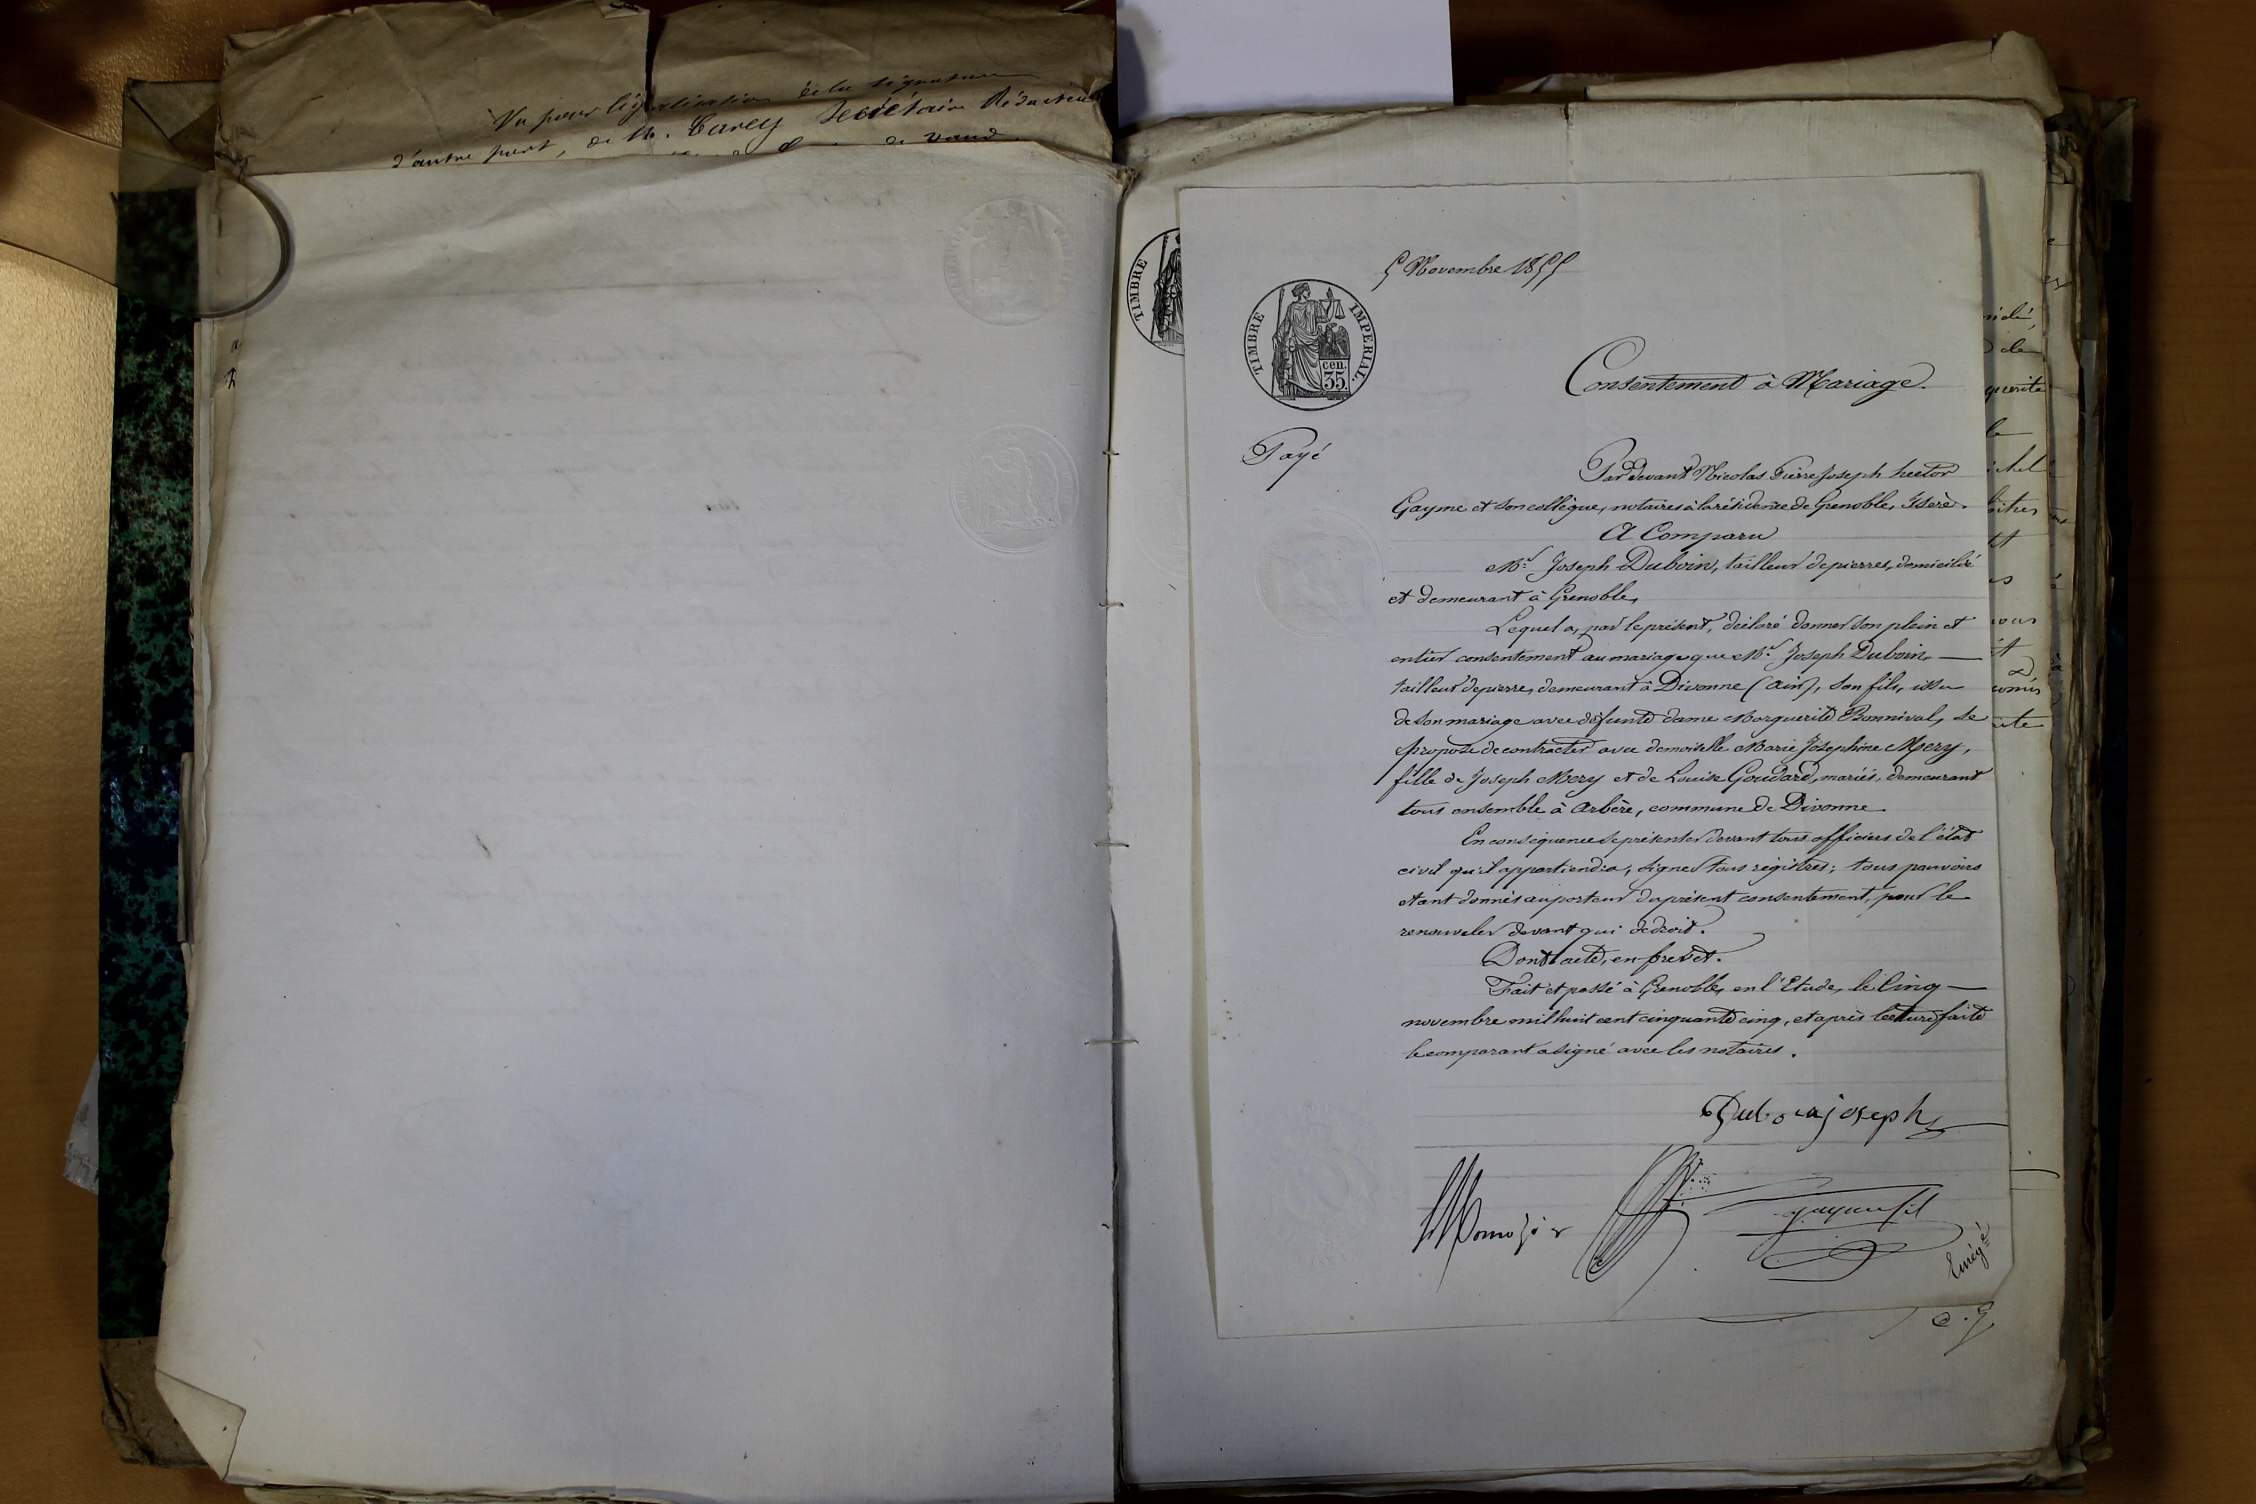 Vu pour légalisation de la signature
d'autre part, de M. Carey Secrétaire Rédacteur
de Vaud
TIMBRE
5 Novembre 1855
TIMBRE IMPERIAL.
cen.
35.
Consentement à Mariage.
Payé
Par devant Nicolas Pierre Joseph hector
Gayme et son collègue, notaires à la résidence de Grenoble, Isère.
A Comparu
Mr. Joseph Duboin, tailleur de pierres, domicilié
et demeurant à Grenoble,
Lequel a, par le présent, déclaré donner son plein et
entier consentement au mariage que Mr. Joseph Duboin,
tailleur de pierre, demeurant à Divonne (Ain), son fils, issu
de son mariage avec défunte dame Marguerite Bonnival, se
propose de contracter avec demoiselle Marie Joséphine Mery,
fille de Joseph Mery et de Louise Goudard, mariés, demeurant
tous ensemble à Arbère, commune de Divonne
En conséquence se présenter devant tous officiers de l'état
civil qu'il appartiendra, signer tous régistres; tous pouvoirs
étant donnés au porteur du présent consentement, pour le
renouveler devant qui de droit.
Dont acte, en brevet.
Fait et passé à Grenoble, en l'Etude, le Cinq
novembre mil huit cent cinquante cinq, et après lecture faite
le comparant a signé avec les notaires.
Duboin joseph
gayme fils
Enregé